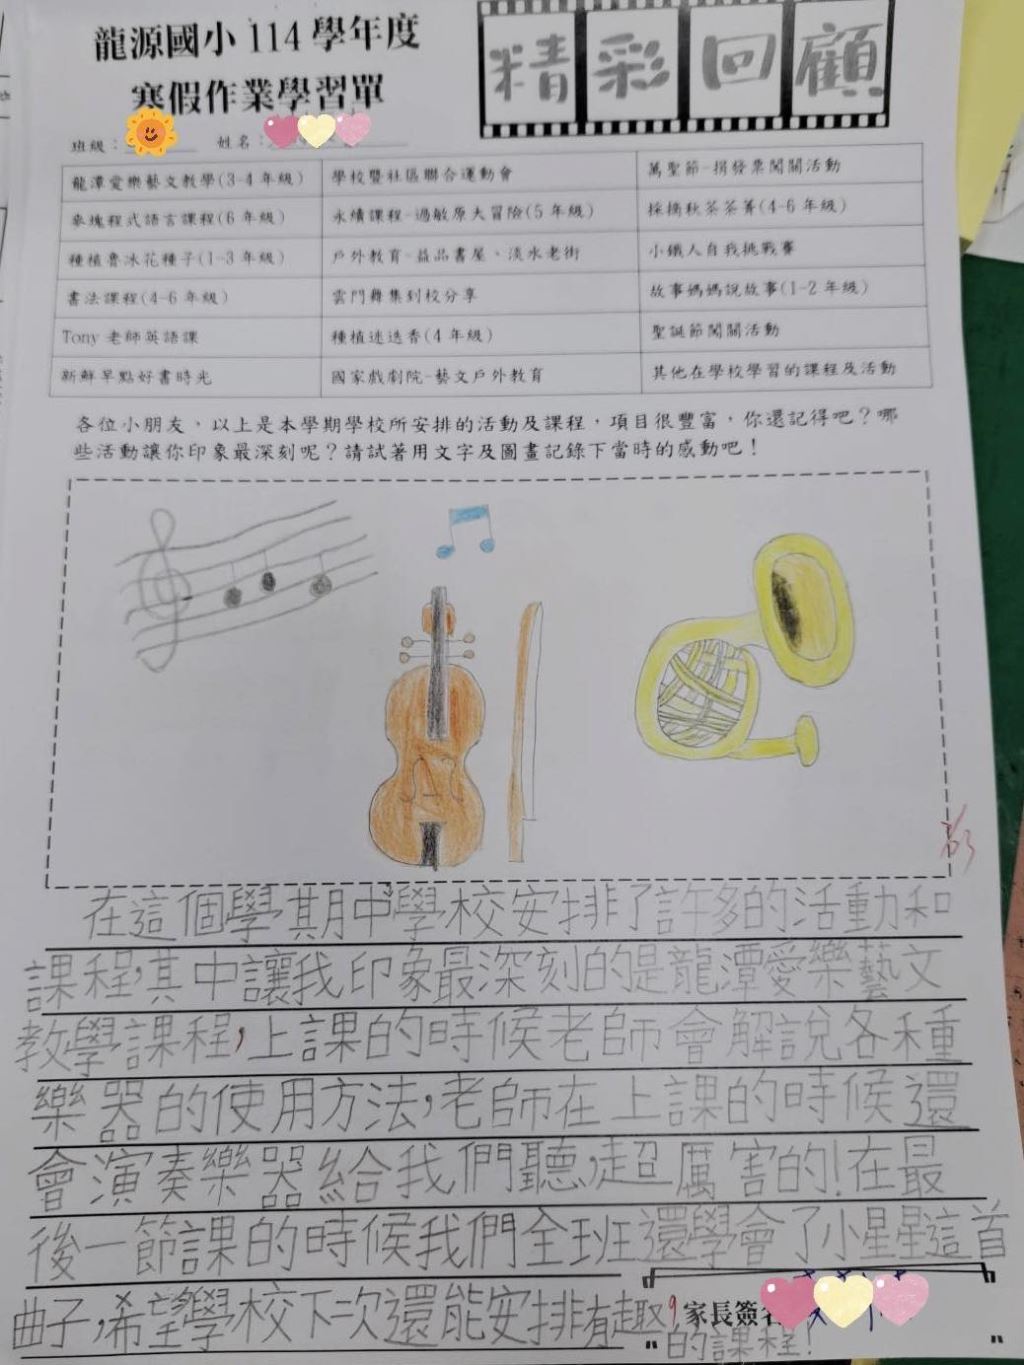 龍源國小 114 學年度
寒假作業學習單
精彩回顧
班級：
姓名：
龍潭愛樂藝文教學(3-4 年級) 學校暨社區聯合運動會 萬聖節-捐發票闖關活動
麥塊程式語言課程(6 年級) 永續課程-過敏原大冒險(5 年級) 採摘秋茶茶菁(4-6 年級)
種植魯冰花種子(1-3 年級) 戶外教育-益品書屋、淡水老街 小鐵人自我挑戰賽
書法課程(4-6 年級) 雲門舞集到校分享 故事媽媽說故事(1-2 年級)
Tony 老師英語課 種植迷迭香(4 年級) 聖誕節闖關活動
新鮮早點好書時光 國家戲劇院-藝文戶外教育 其他在學校學習的課程及活動
各位小朋友，以上是本學期學校所安排的活動及課程，項目很豐富，你還記得吧？哪
些活動讓你印象最深刻呢？請試著用文字及圖畫記錄下當時的感動吧！
在這個學期中學校安排了許多的活動和
課程，其中讓我印象最深刻的是龍潭愛樂藝文
教學課程，上課的時候老師會解說各種
樂器的使用方法，老師在上課的時候還
會演奏樂器給我們聽，超厲害的！在最
後一節課的時候我們全班還學會了小星星這首
曲子，希望學校下次還能安排有趣
的課程！
家長簽名